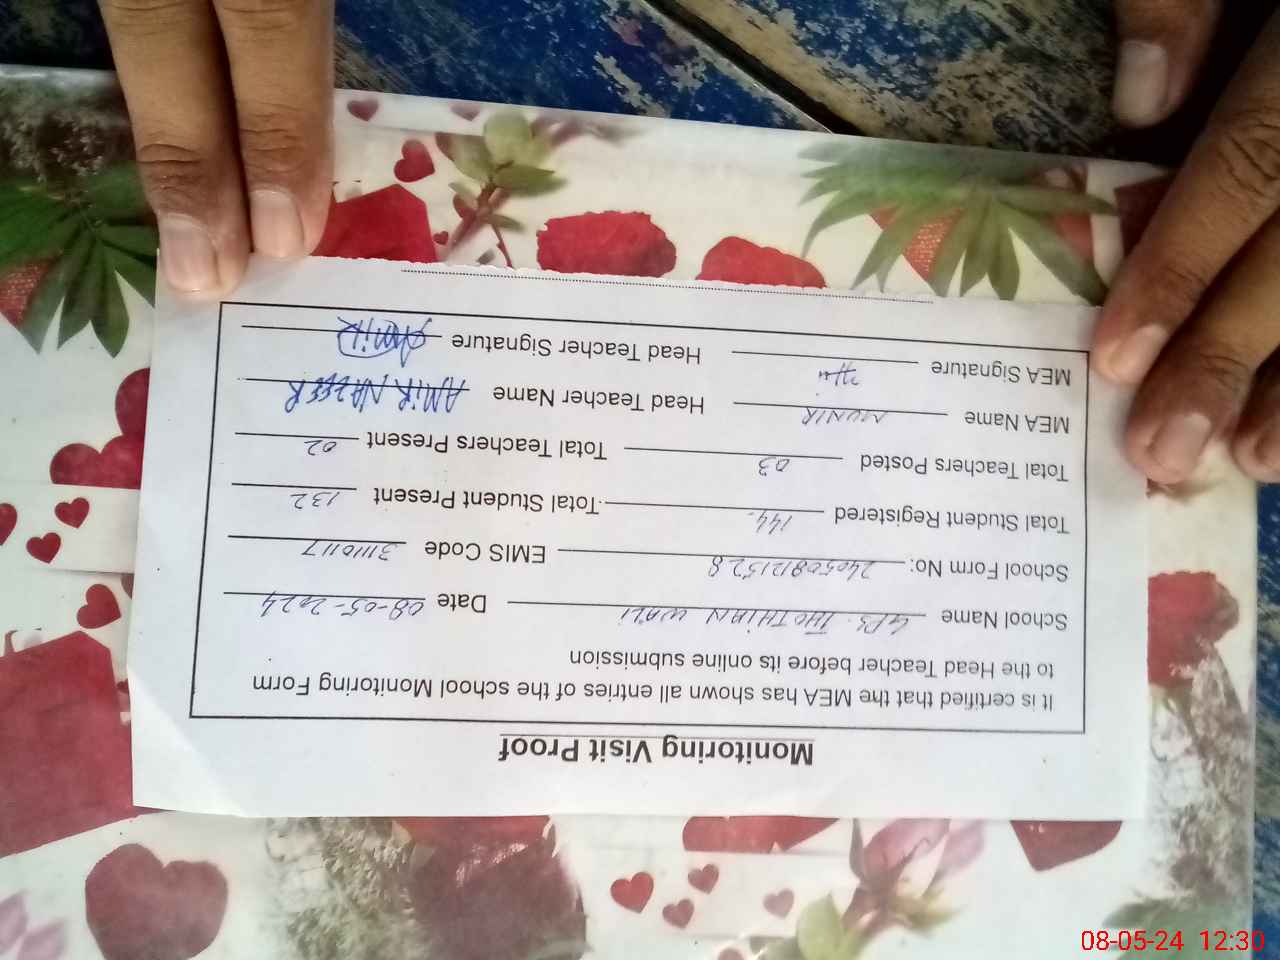 Monitoring Visit Proof
It is certified that the MEA has shown all entries of the school Monitoring Form
to the Head Teacher before its online submission
School Name GPS. THOTHIAN WALI Date 08-05-2024
School Form No: 240508121528 EMIS Code 31110117
Total Student Registered 144 Total Student Present 132
Total Teachers Posted 03 Total Teachers Present 02
MEA Name MUNIR Head Teacher Name AMIR NAZEER
MEA Signature Head Teacher Signature AMIR
08-05-24 12:30